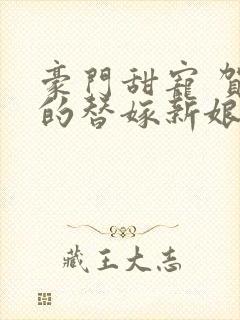 豪門甜寵
的替嫁新娘
藏王大志